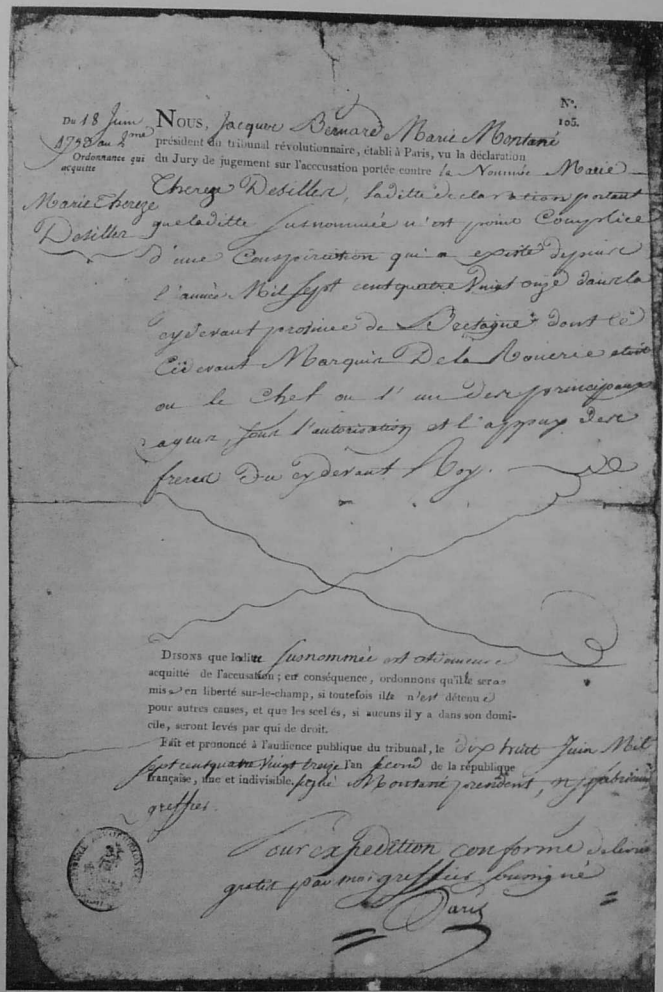 N°.
105.
Du 18 Juin
1793 au 2me
Ordonnance qui
acquitte
Marie Thereze
Desilles
NOUS, Jacques Bernard Marie Montané
président du tribunal révolutionnaire, établi à Paris, vu la déclaration
du Jury de jugement sur l'acccusation portée contre la Nommée Marie
Thereze Desilles, laditte declaration portant
que laditte susnommée n'est point Complice
d'une Conspiration qui a existé depuis
l'année Mil sept cent quatre Vingt onze dans la
cy devant province de Bretagne dont le
Cidevant Marquis De la Rouerie etoit
ou le chef ou l'un des principaux
agens, sous l'autorisation et l'appuy des
freres Du cy devant Roy.
DISONS que ladite susnommée est et demeure
acquitté de l'accusation ; en conséquence, ordonnons qu'ille sera
mise en liberté sur-le-champ, si toutefois ille n'est détenue
pour autres causes, et que les scellés, si aucuns il y a dans son domi-
cile, seront levés par qui de droit.
Fait et prononcé à l'audience publique du tribunal, le dix huit Juin Mil
sept cent quatre Vingt treize l'an second de la république
française, une et indivisible. signé Montané president,
greffier.
Pour expedition conforme delivrée
gratis par moi greffier soussigné
Paris